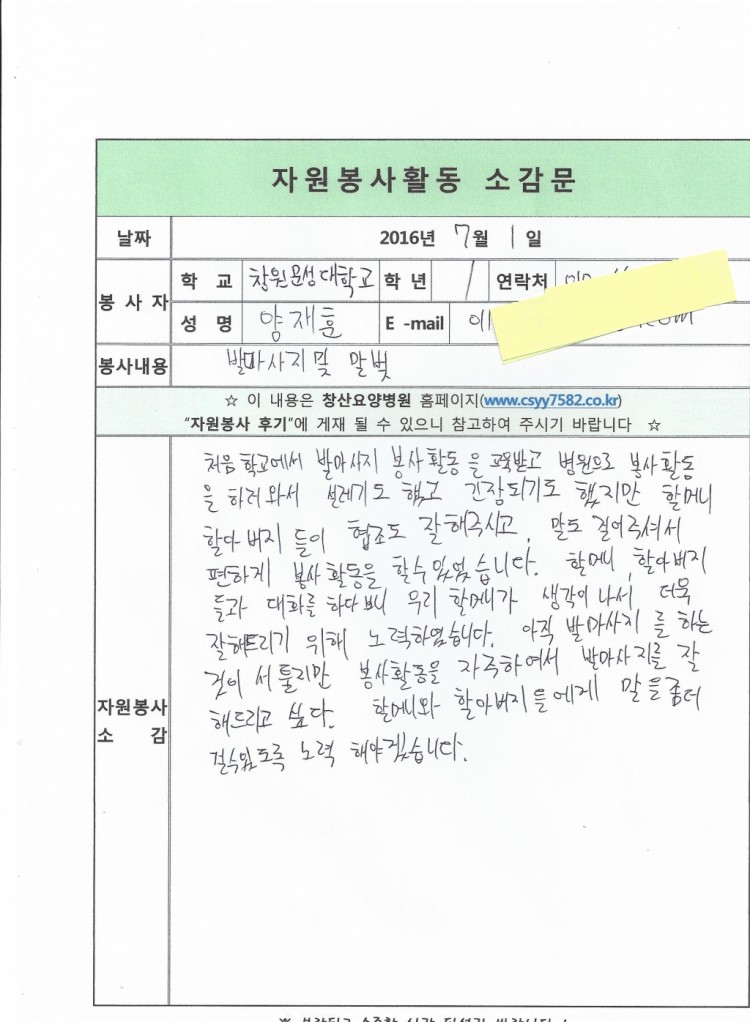 자원봉사활동 소감문
날짜 2016년 7월 1일
봉사자 학교 창원문성대학교 학년 1 연락처
성명 양재훈 E-mail
봉사내용 발마사지및 말벗
☆ 이 내용은 창산요양병원 홈페이지(www.csyy7582.co.kr)
"자원봉사 후기"에 게재 될 수 있으니 참고하여 주시기 바랍니다 ☆
자원봉사
소감
처음 학교에서 발마사지 봉사활동을 교육받고 병원으로 봉사활동
을 하러와서 설레기도 했고 긴장되기도 했지만 할머니
할아버지 들이 협조도 잘해주시고, 말도 걸어주셔서
편하게 봉사활동을 할수있었습니다. 할머니, 할아버지
들과 대화를 하다보니 우리 할머니가 생각이나서 더욱
잘해드리기 위해 노력하였습니다. 아직 발마사지를 하는
것이 서툴지만 봉사활동을 자주하여서 발마사지를 잘
해드리고 싶다. 할머니와 할아버지들에게 말을좀더
걸수있도록 노력 해야겠습니다.